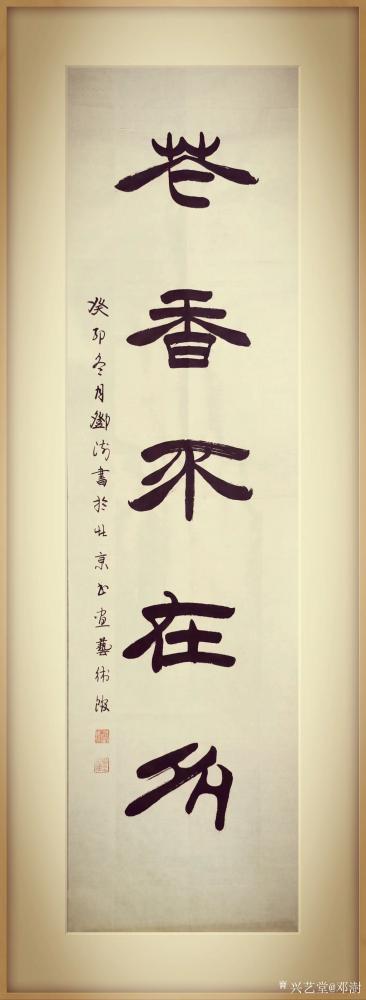 花香不在多
癸卯冬月鄧澍書於北京書畫藝術館
兴艺堂@邓澍